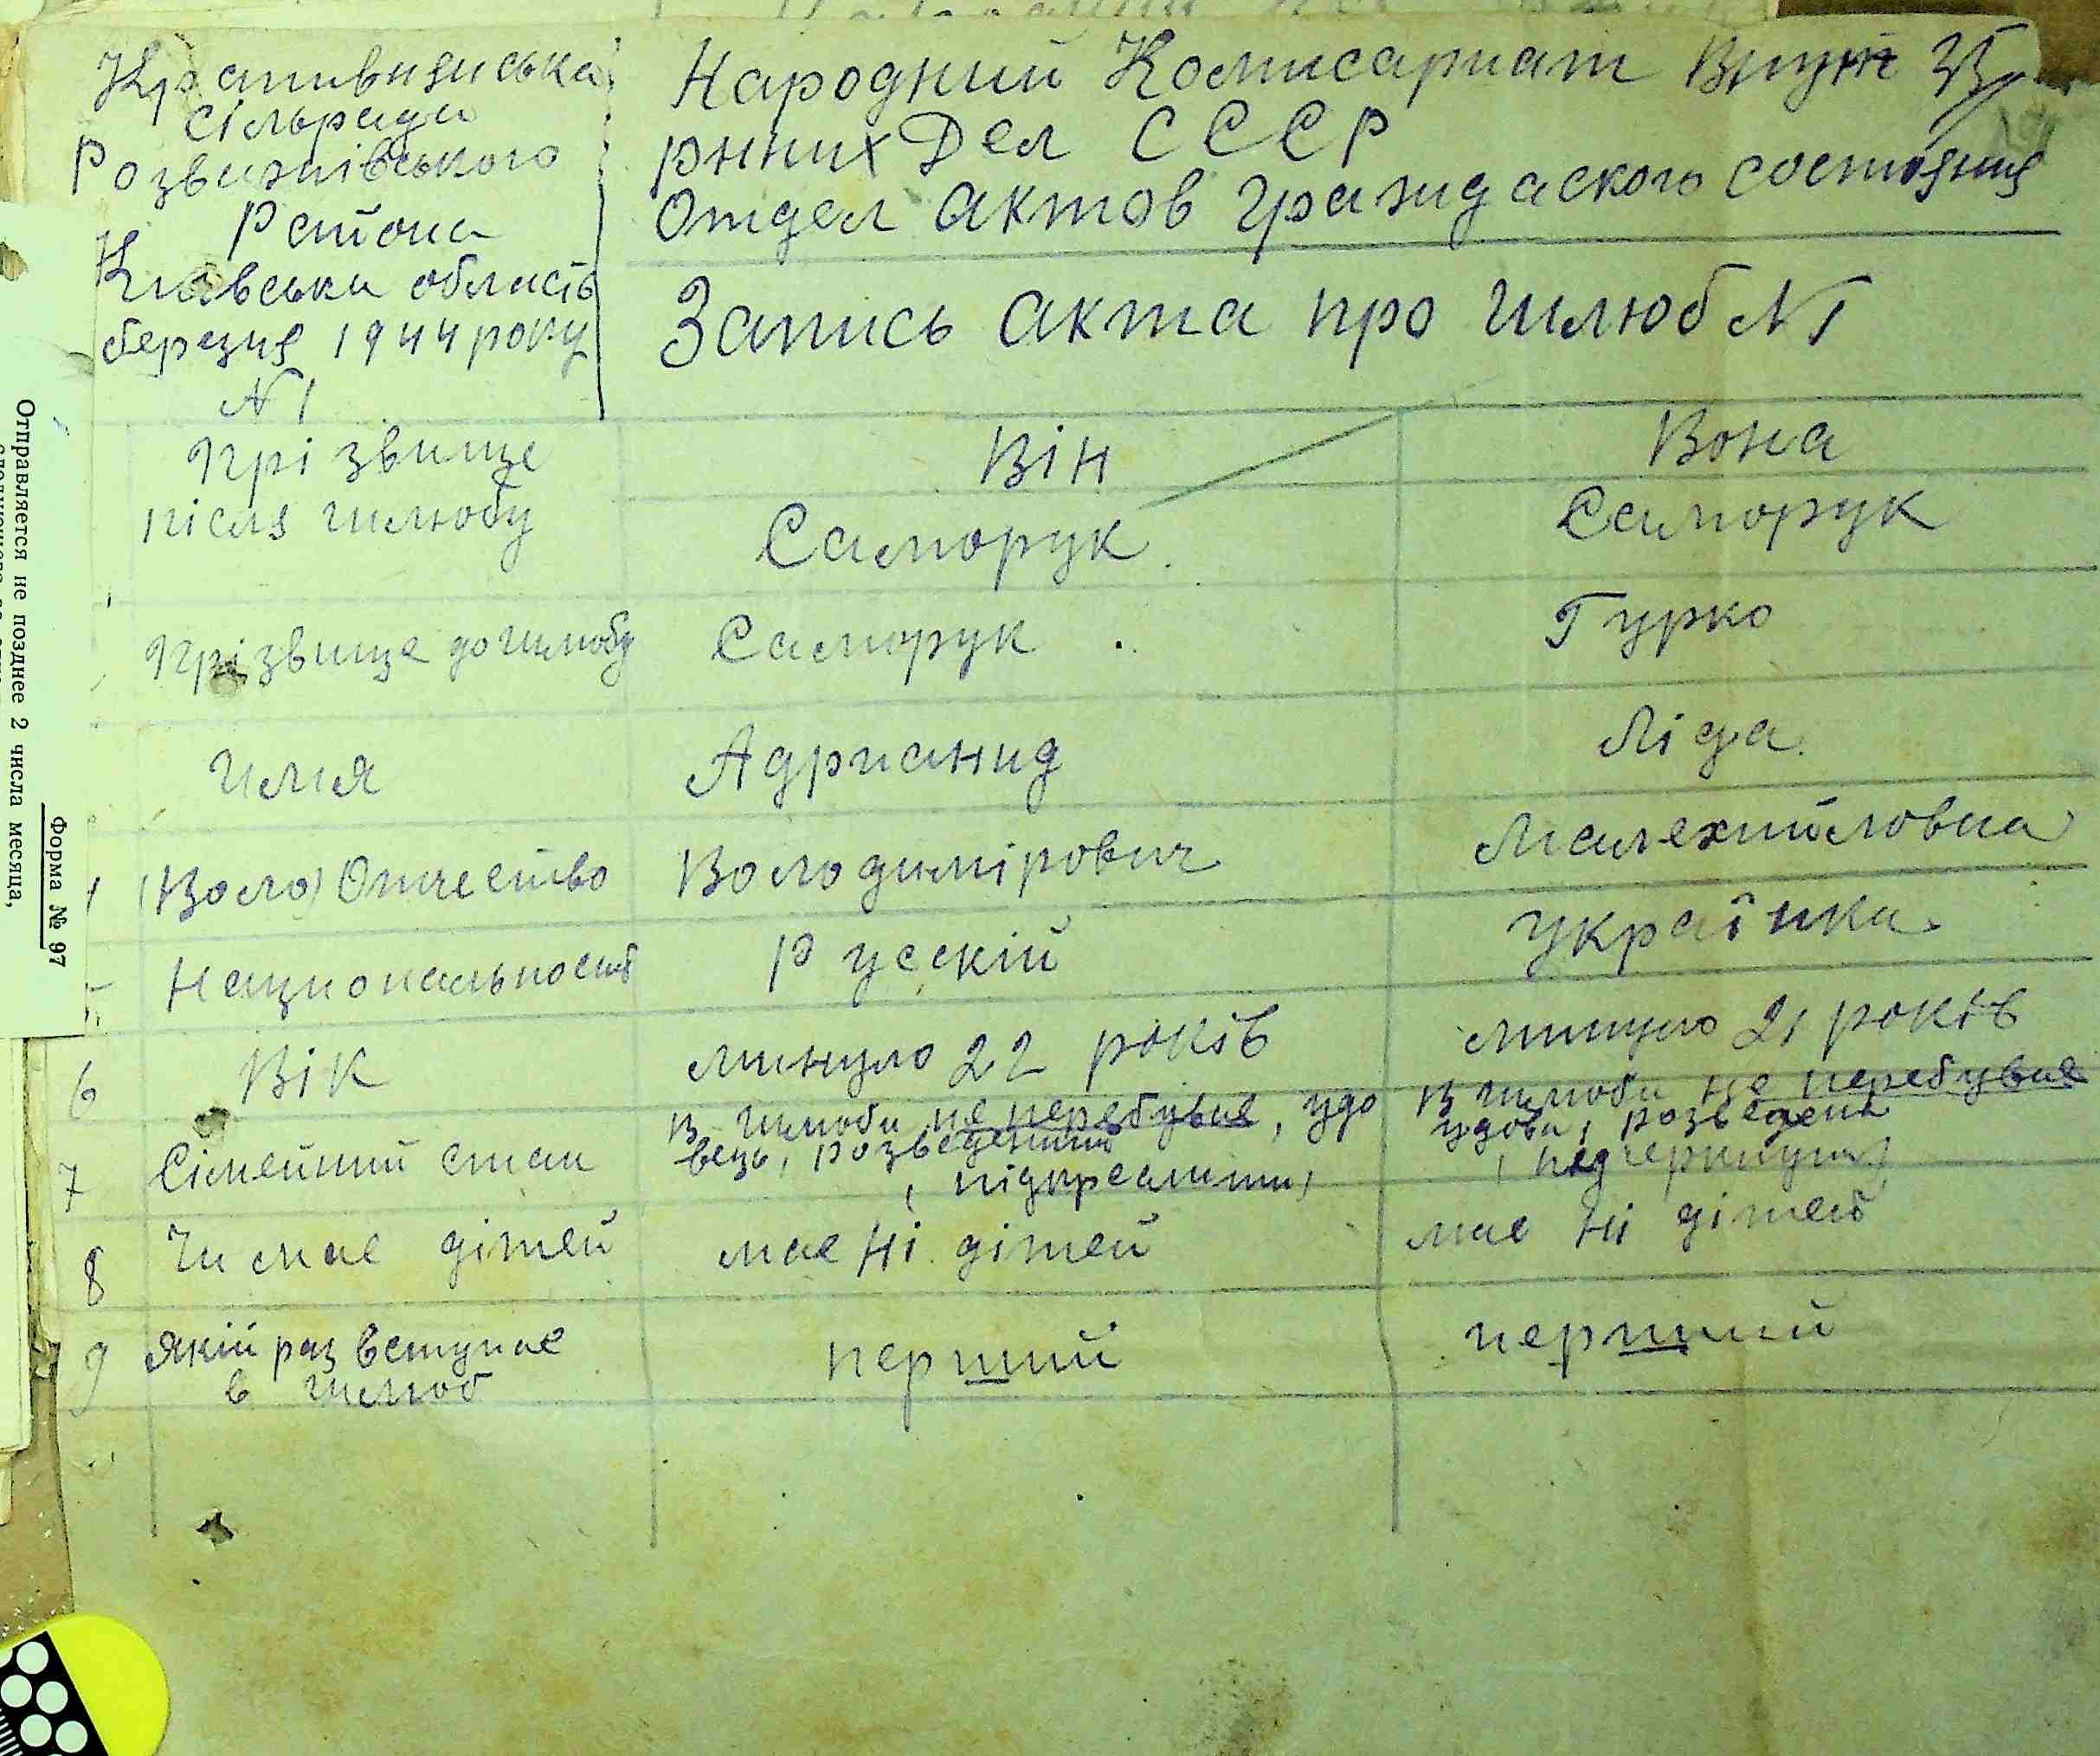 Кративизиська
сільрада
Розважівського
Района
Київська область
березня 1944 року
N 1
Народний Комисариат Внут
рнних Дел СССР
Отдел актов граждаского состояния
Запись акта про шлюб N 1
Прізвище
після шлюбу
Він
Вона
Саморук
Саморук
Прізвище до шлюбу
Саморук
Гурко
Имя
Адрианид
Ліда
(Воло) Отчество
Володимірович
Малехийловна
Национальность
Русскій
Українка
6 Вік
минуло 22 років
минуло 21 років
7 Сімейний стан
в шлюби не перебував, удо
вець, розведенний
(підкреслити)
в шлюби не перебувае
удова, розведена
(подчеркнути)
8 Чи мае дітей
мае ні дітей
мае ні дітей
9 Якій раз вступае
в шлюб
перший
перший
Отправляется не позднее 2 числа месяца,
Форма № 97